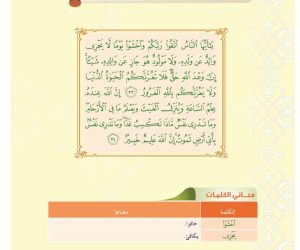 يَٰٓأَيُّهَا ٱلنَّاسُ ٱتَّقُوا۟ رَبَّكُمْ وَٱخْشَوْا۟ يَوْمًا لَّا يَجْزِى
وَالِدٌ عَن وَلَدِهِۦ وَلَا مَوْلُودٌ هُوَ جَازٍ عَن وَالِدِهِۦ شَيْـًٔا
إِنَّ وَعْدَ ٱللَّهِ حَقٌّ فَلَا تَغُرَّنَّكُمُ ٱلْحَيَوٰةُ ٱلدُّنْيَا
وَلَا يَغُرَّنَّكُم بِٱللَّهِ ٱلْغَرُورُ ﴿٣٣﴾ إِنَّ ٱللَّهَ عِندَهُۥ
عِلْمُ ٱلسَّاعَةِ وَيُنَزِّلُ ٱلْغَيْثَ وَيَعْلَمُ مَا فِى ٱلْأَرْحَامِ
وَمَا تَدْرِى نَفْسٌ مَّاذَا تَكْسِبُ غَدًا وَمَا تَدْرِى نَفْسٌۢ
بِأَىِّ أَرْضٍ تَمُوتُ إِنَّ ٱللَّهَ عَلِيمٌ خَبِيرٌۢ ﴿٣٤﴾
معاني الكلمات
الكلمة معناها
ٱخْشَوْا۟ خافوا.
يَجْزِى يكافئ.